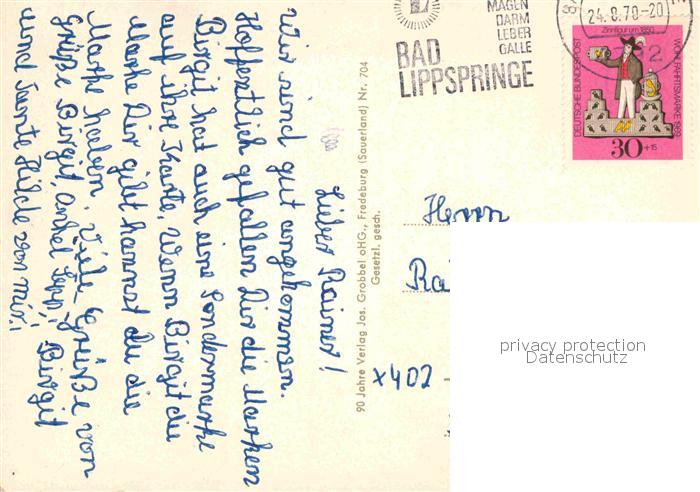 Lieber Rainer!
Wir sind gut angekommen.
Hoffentlich gefallen Dir die Marken
Birgit hat auch eine Sondermarke
auf ihre Karte, Wenn Birgit die
Marke Dir gibt kannst du die
Marke haben. Viele Grüße von
Grüße Birgit, onkel Sepp, Birgit
und Tante Hilde von mir!
90 Jahre Verlag Jos. Grobbel oHG., Fredeburg (Sauerland) Nr. 704
Gesetzl. gesch.
MAGEN
DARM
LEBER
GALLE
BAD
LIPPSPRINGE
24.8.70-20
2
Zinnfigur um 1850
DEUTSCHE BUNDESPOST
WOHLFAHRTSMARKE 1969
30+15
Herrn
Ra
x402
privacy protection
Datenschutz